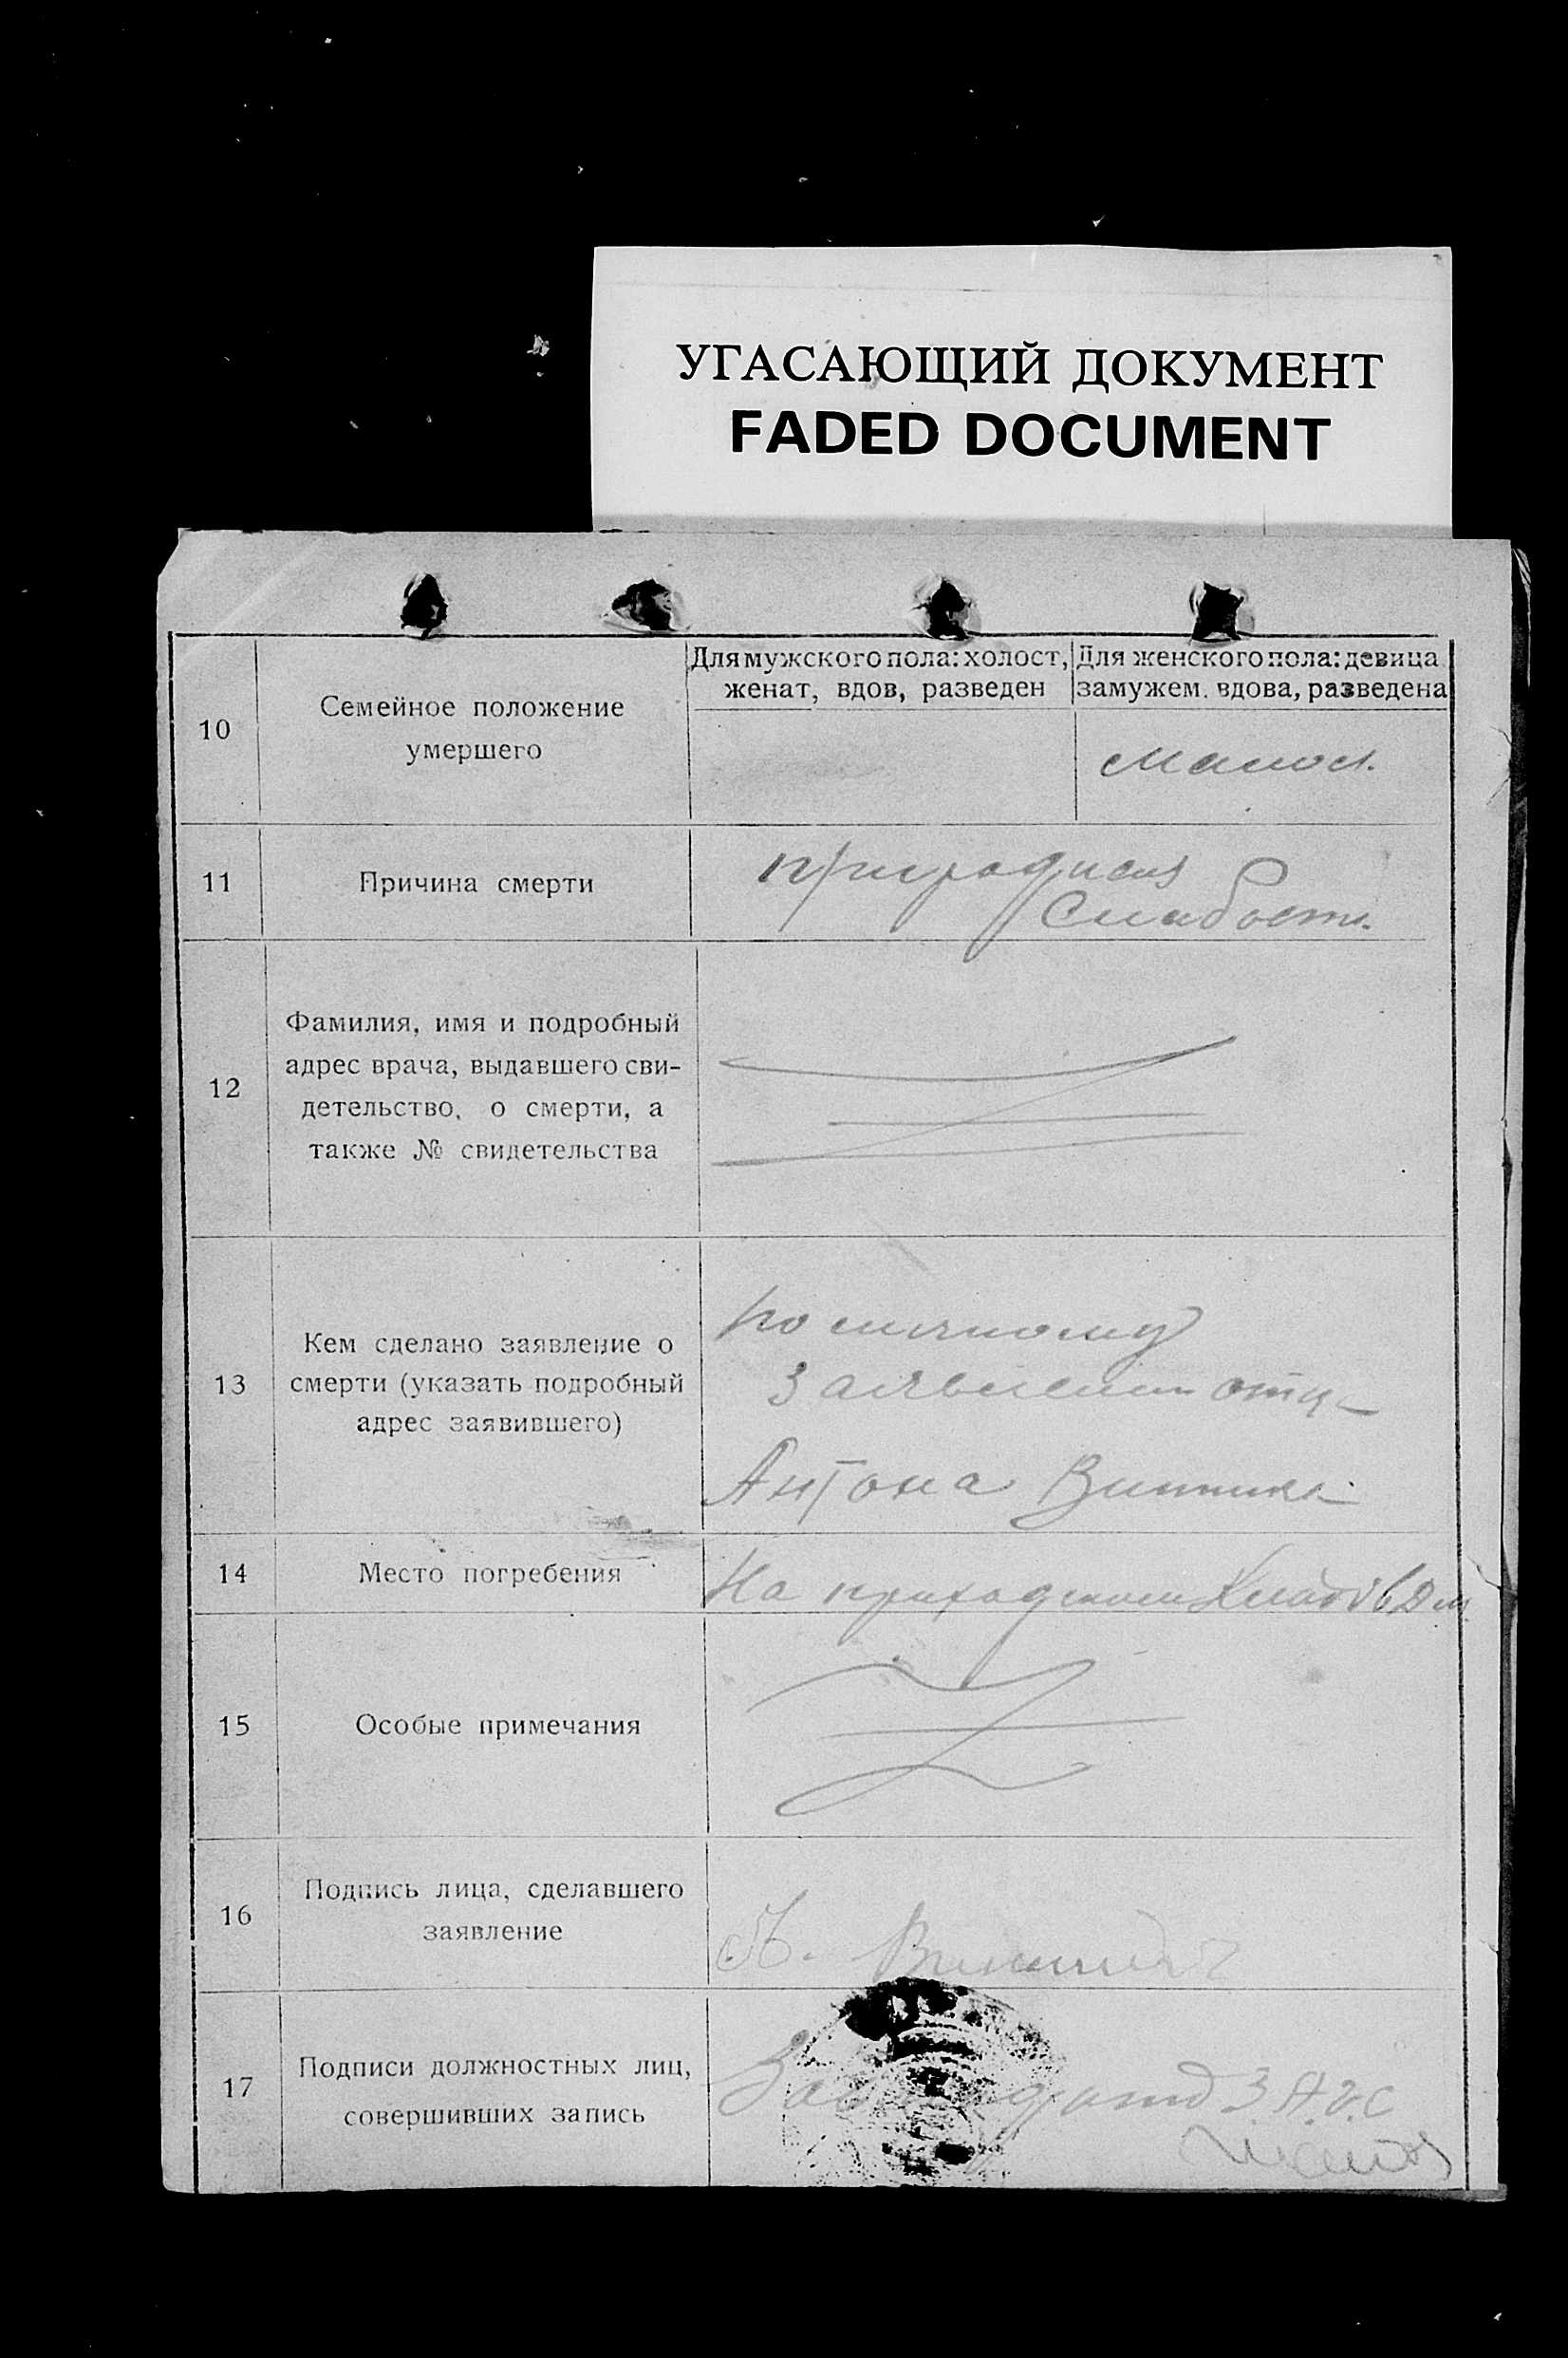 УГАСАЮЩИЙ ДОКУМЕНТ
FADED DOCUMENT
10
Семейное положение
умершего
Для мужского пола: холост,
женат, вдов, разведен
Для женского пола: девица
замужем. вдова, разведена
малол.
11
Причина смерти
природная
слабость.
12
Фамилия, имя и подробный
адрес врача, выдавшего сви-
детельство, о смерти, а
также № свидетельства
13
Кем сделано заявление о
смерти (указать подробный
адрес заявившего)
по личному
заявлению отца
Антона
14
Место погребения
На приходском
15
Особые примечания
16
Подпись лица, сделавшего
заявление
А.
17
Подписи должностных лиц,
совершивших запись
З.А.Г.С